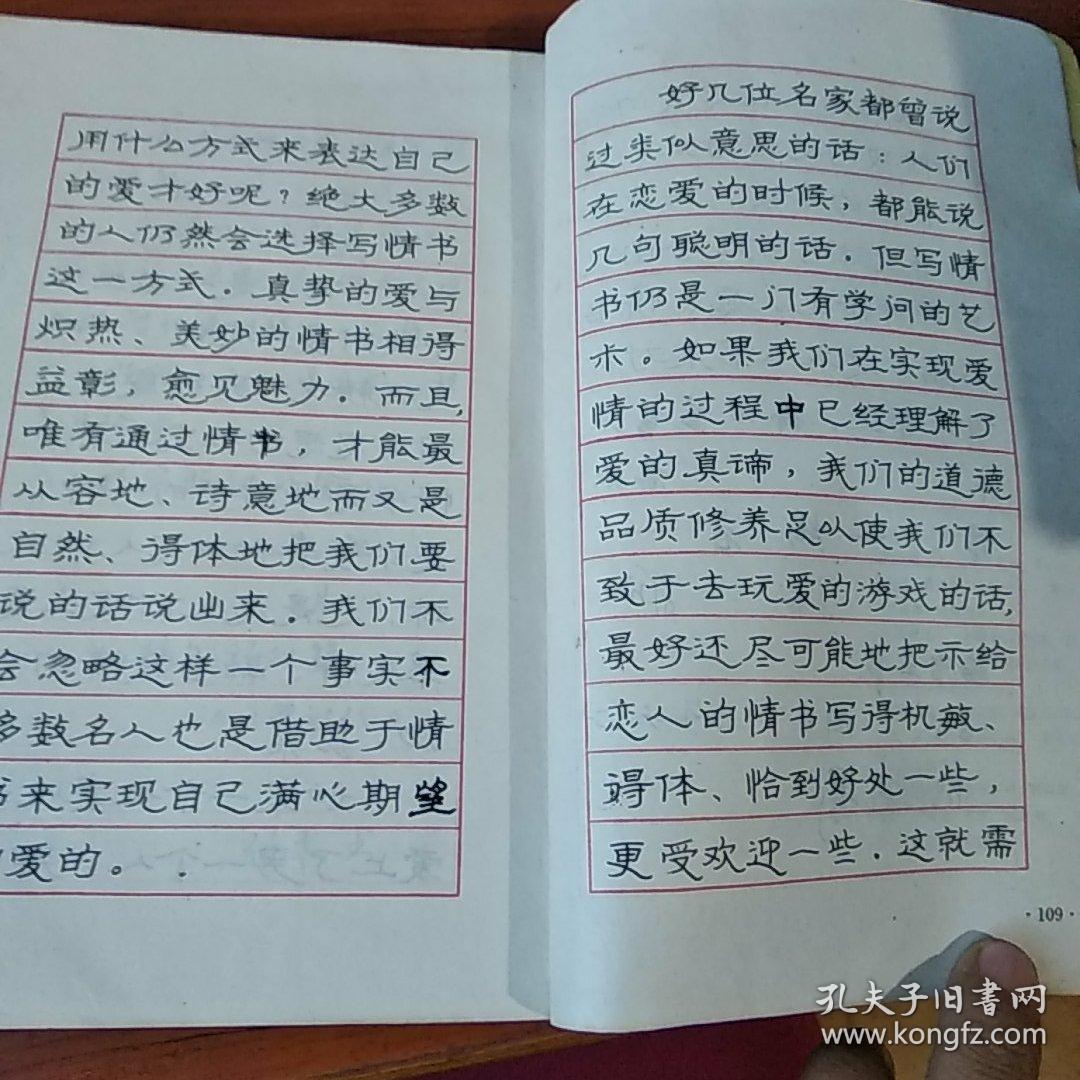 用什么方式来表达自己
的爱才好呢？绝大多数
的人仍然会选择写情书
这一方式．真挚的爱与
炽热、美妙的情书相得
益彰，愈见魅力．而且，
唯有通过情书，才能最
从容地、诗意地而又是
自然、得体地把我们要
说的话说出来．我们不
会忽略这样一个事实不
多数名人也是借助于情
书来实现自己满心期望
的爱的。
好几位名家都曾说
过类似意思的话：人们
在恋爱的时候，都能说
几句聪明的话．但写情
书仍是一门有学问的艺
术。如果我们在实现爱
情的过程中已经理解了
爱的真谛，我们的道德
品质修养足以使我们不
致于去玩爱的游戏的话，
最好还尽可能地把示给
恋人的情书写得机敏、
得体、恰到好处一些，
更受欢迎一些．这就需
·109·
孔夫子旧書网
www.kongfz.com